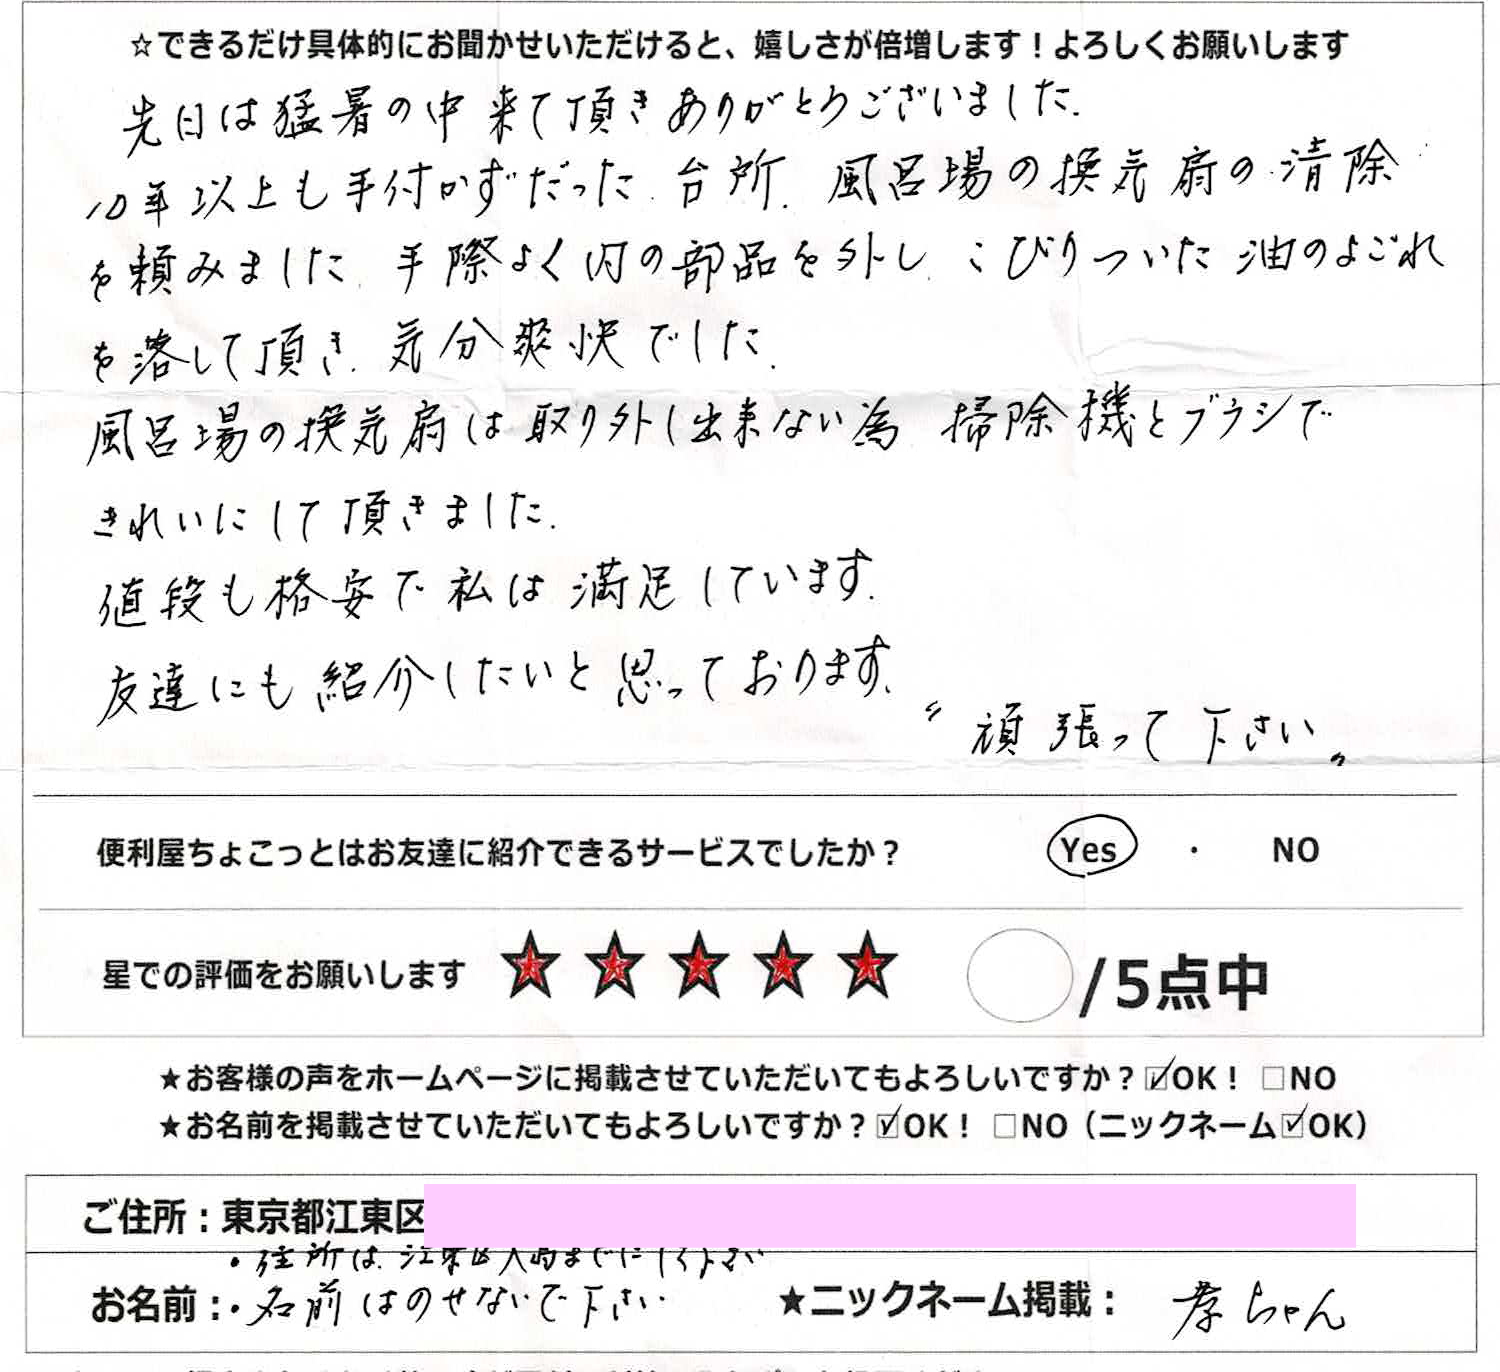 ☆できるだけ具体的にお聞かせいただけると、嬉しさが倍増します！よろしくお願いします
先日は猛暑の中来て頂きありがとうございました.
10年以上も手付かずだった.台所.風呂場の換気扇の清除
を頼みました.手際よく内の部品を外し.こびりついた油のよごれ
を落して頂き.気分爽快でした.
風呂場の換気扇は取り外し出来ない為 掃除機とブラシで
きれいにして頂きました.
値段も格安で私は満足しています.
友達にも紹介したいと思っております.
〝頑張って下さい〟
便利屋ちょこっとはお友達に紹介できるサービスでしたか？ Yes ・ NO
星での評価をお願いします ★★★★★ /5点中
★お客様の声をホームページに掲載させていただいてもよろしいですか？☑OK！ □NO
★お名前を掲載させていただいてもよろしいですか？☑OK！ □NO（ニックネーム☑OK）
ご住所：東京都江東区
・住所は.江東区大島までにしてください
お名前：・名前はのせないで下さい ★ニックネーム掲載： 孝ちゃん